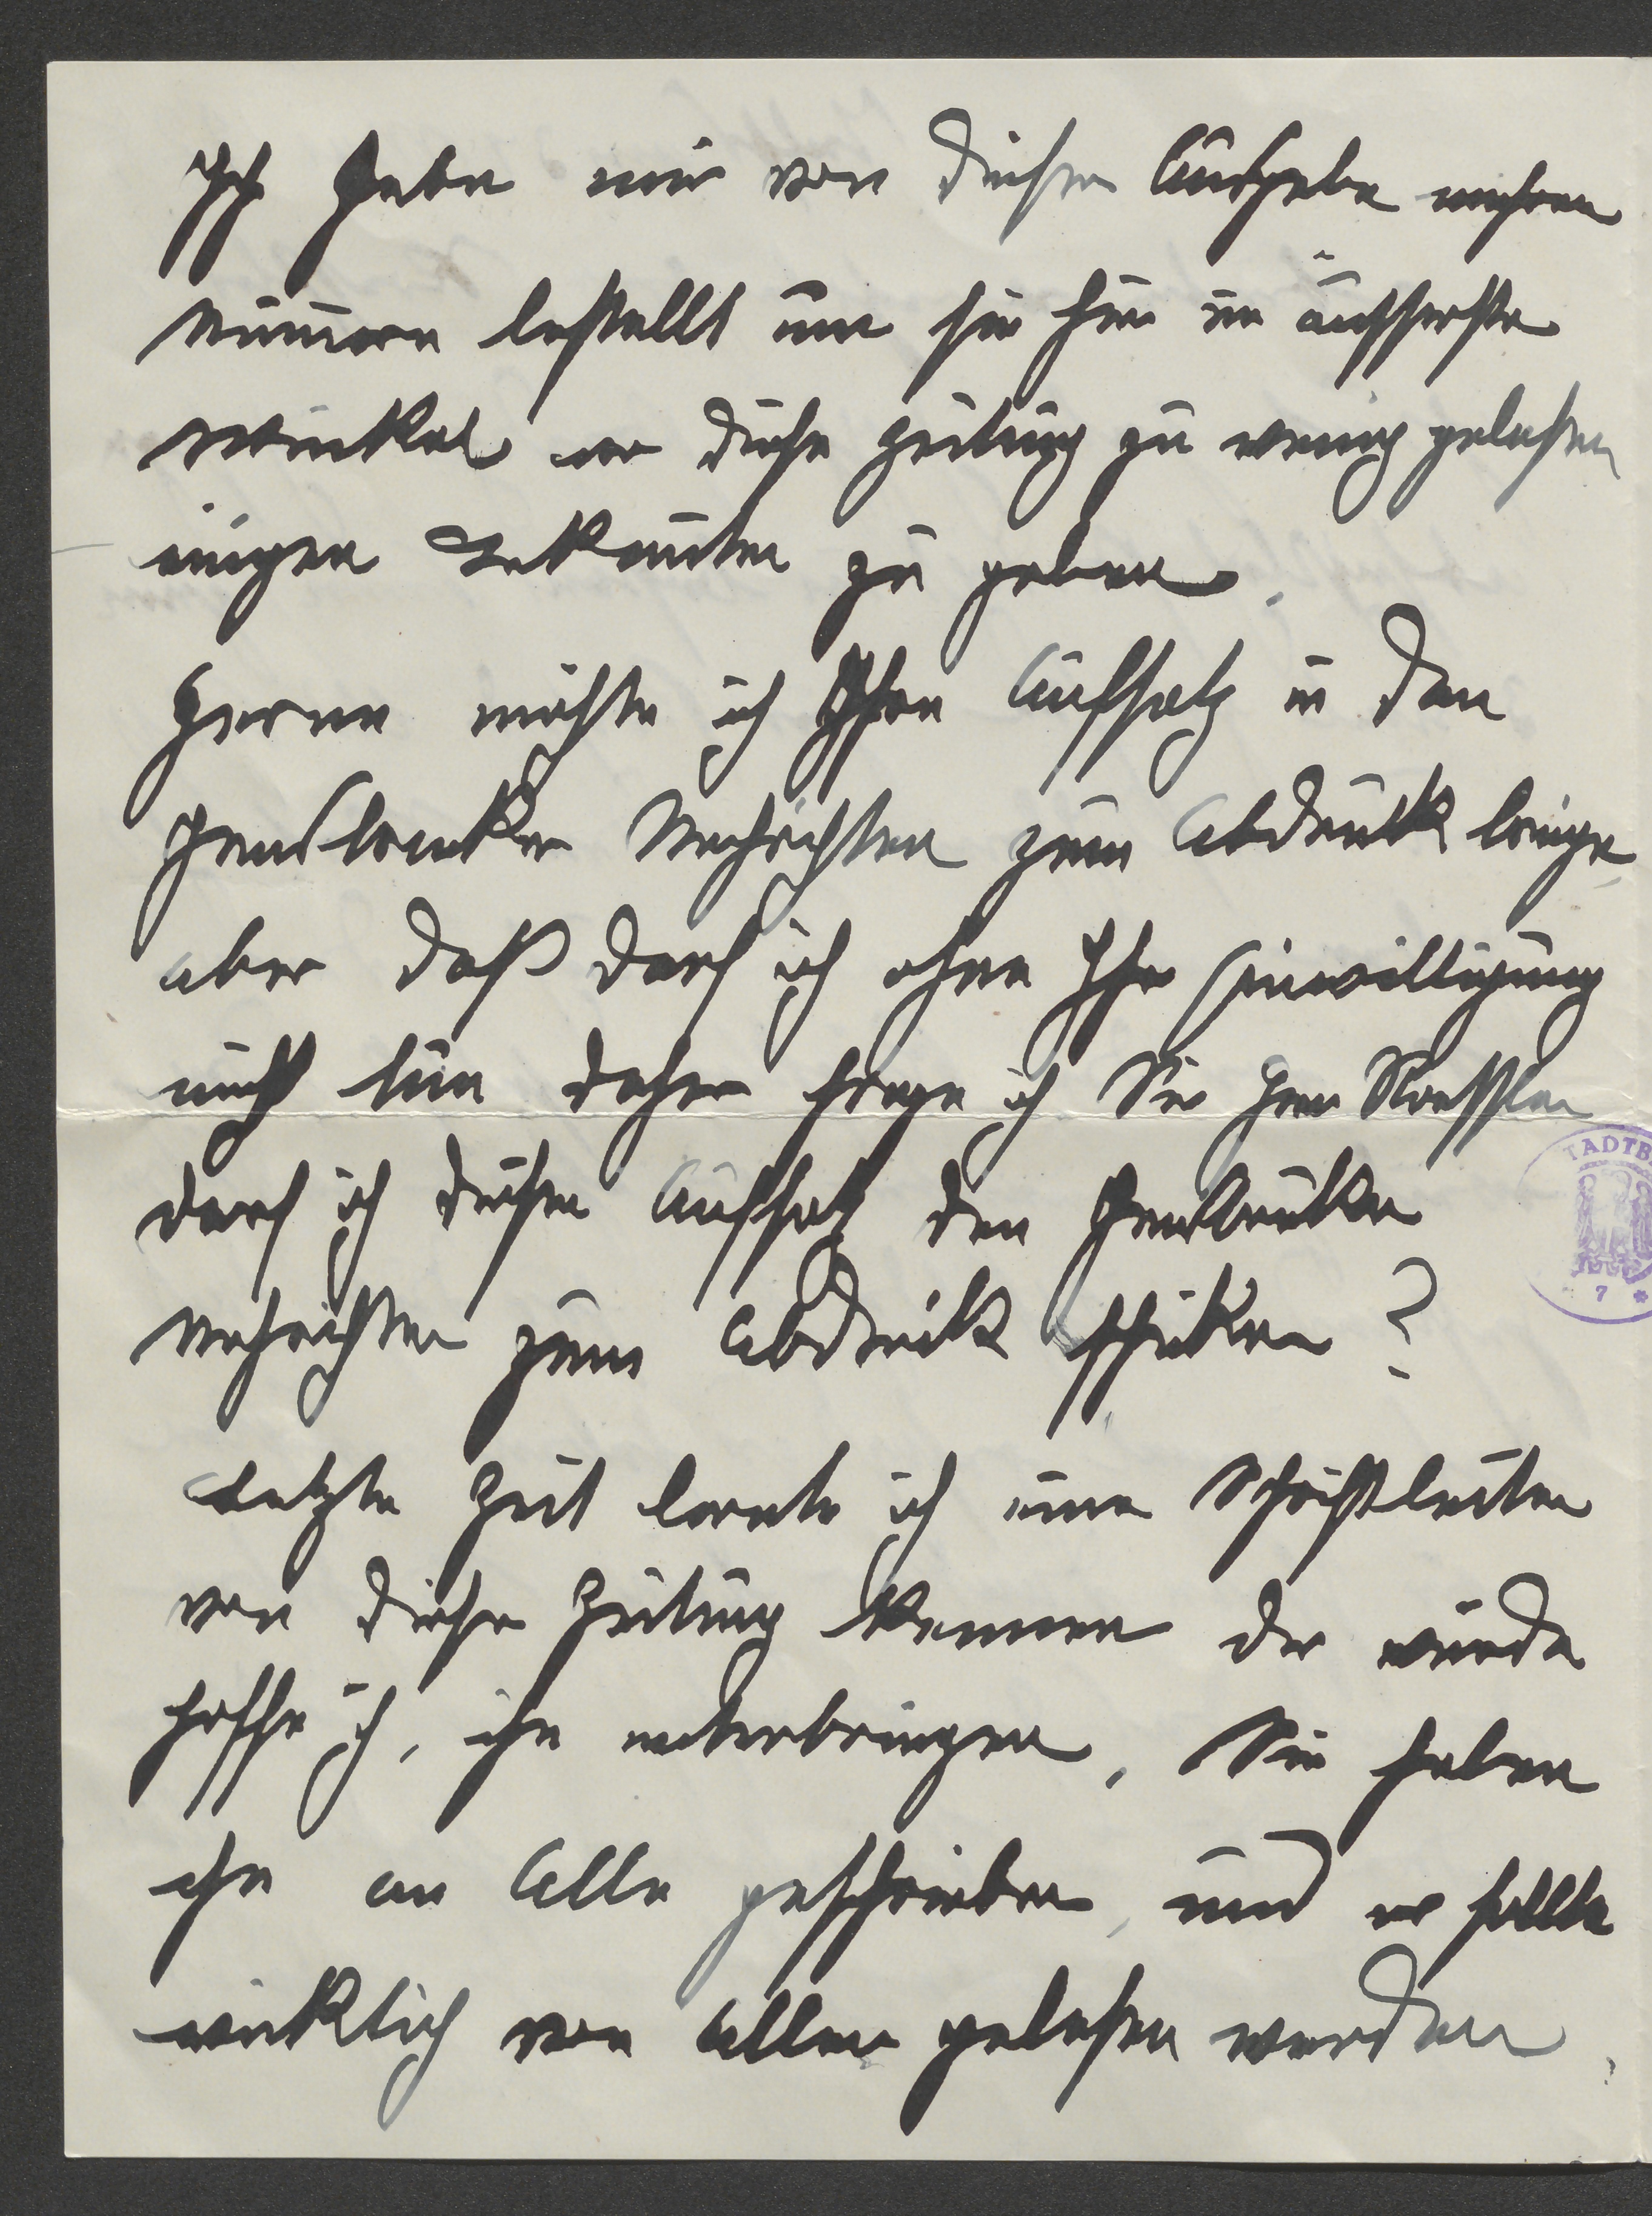 Ich habe mir von dieser Ausgabe mehrere
Nummern bestellt um sie hier im äussersten
Winkel wo diese Zeitung zu wenig gelesen
einigen Bekannten zu geben.
Gerne möchte ich Ihren Aufsatz in den
Innsbrucker Nachrichten zum Abdruck bringen
aber daß darf ich ohne Ihre Einwilligung
nicht tun daher frage ich Sie Herr Roessler
darf ich diesen Aufsatz den Innsbrucker
Nachrichten zum Abdruck schicken?
Letzte Zeit lernte ich einen Schriftleiter
von dieser Zeitung kennen der würde
hoffe ich, ihn unterbringen. Sie haben
ihn an Alle geschrieben, und er sollte
wirklich von Allen gelesen werden.
TADTB
7 *